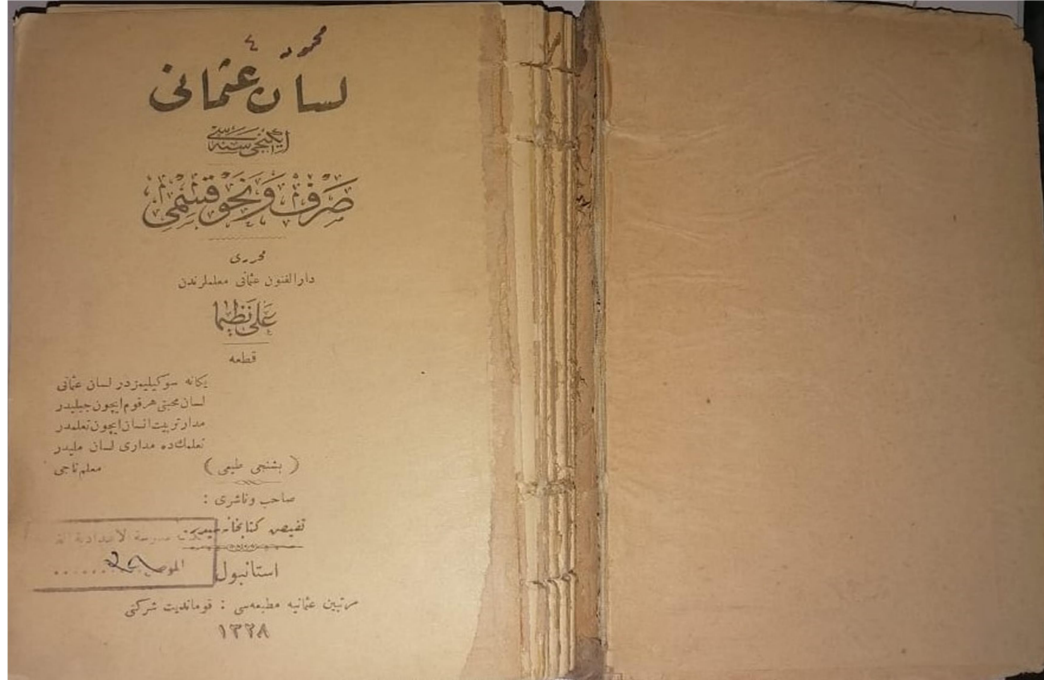 محمود ٤
لسان عثمانی
ایکنجی سنه سی
صرف و نحو قسمی
محرری
دار الفنون عثمانی معلملرندن
علی نظیما
قطعه
یکانه سوکیلیمزدر لسان عثمانی
لسان محبتی هر قوم ایچون جبلیدر
مدار تربیت انسان ایچون تعلمدر
تعلمك ده مداری لسان ملیدر
معلم ناجی
( بشنجی طبعی )
صاحب و ناشری :
کتابخانه
مدرسة الاعدادية
استانبول
مرتبین عثمانیه مطبعه سی : قوماندیت شرکتی
١٣٢٨